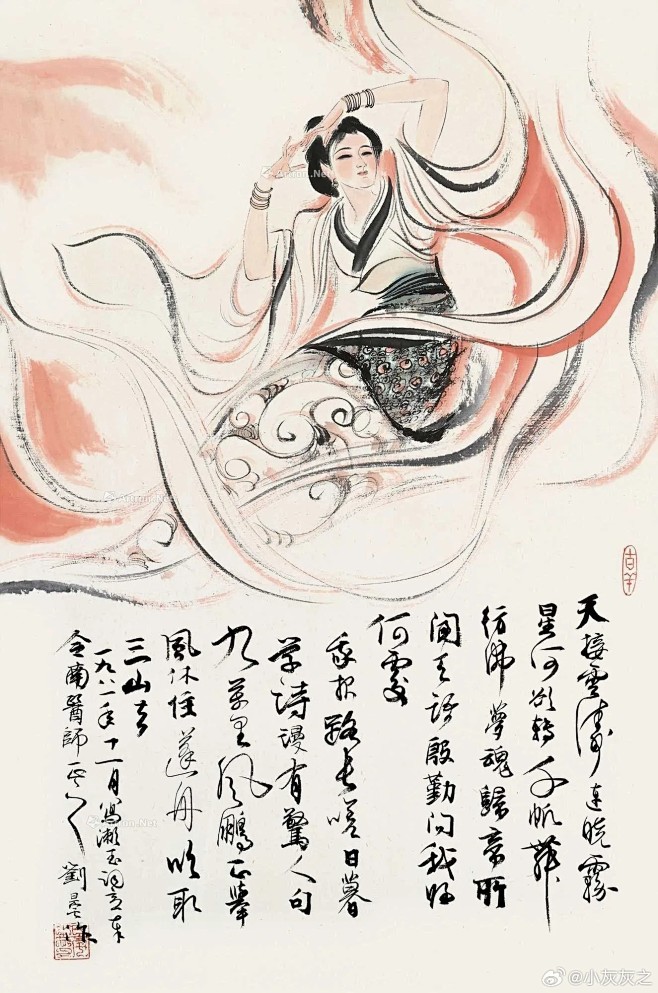 天接雲濤連曉霧
星河欲轉千帆舞
彷佛夢魂歸帝所
聞天語殷勤問我歸
何處
我報路長嗟日暮
学詩漫有驚人句
九萬里風鵬正舉
風休住蓬舟吹取
三山去
一九八一年十一月寫漱玉詞意奉
令南醫師正之 劉旦宅
吉羊
Artron.Net
@小灰灰之